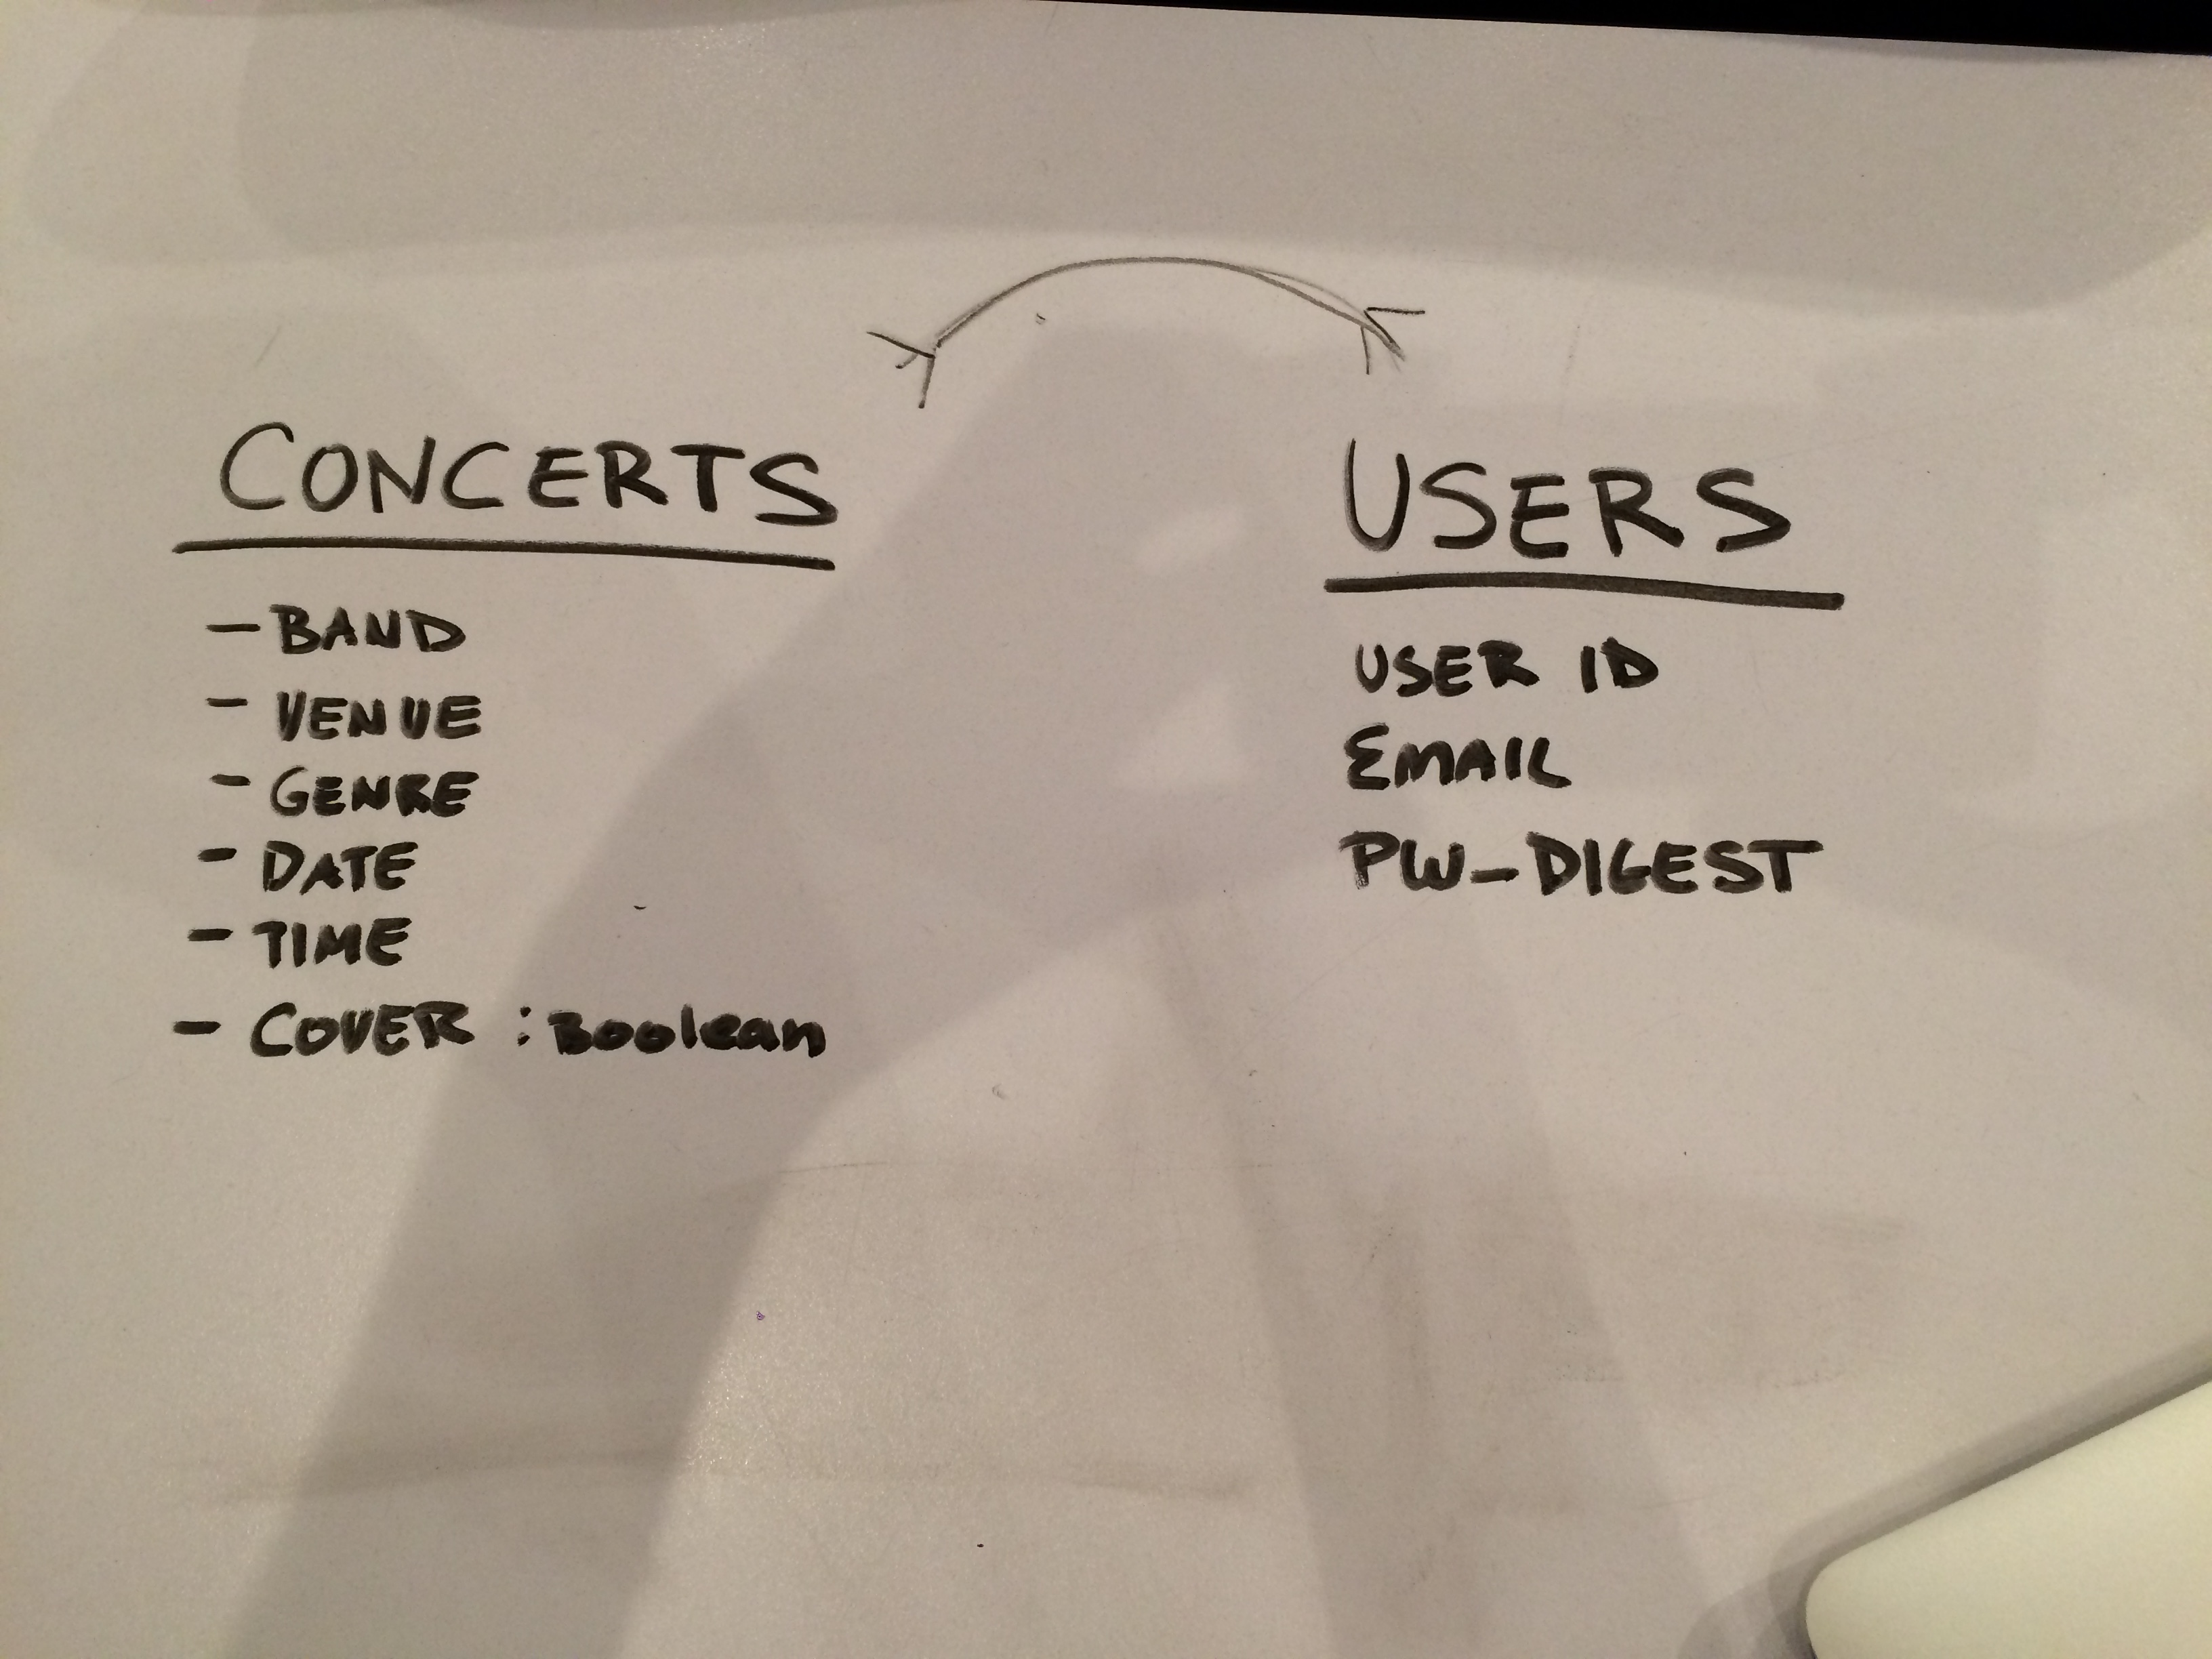 CONCERTS
- BAND
- VENUE
- GENRE
- DATE
- TIME
- COVER : Boolean
USERS
USER ID
EMAIL
PW_DIGEST